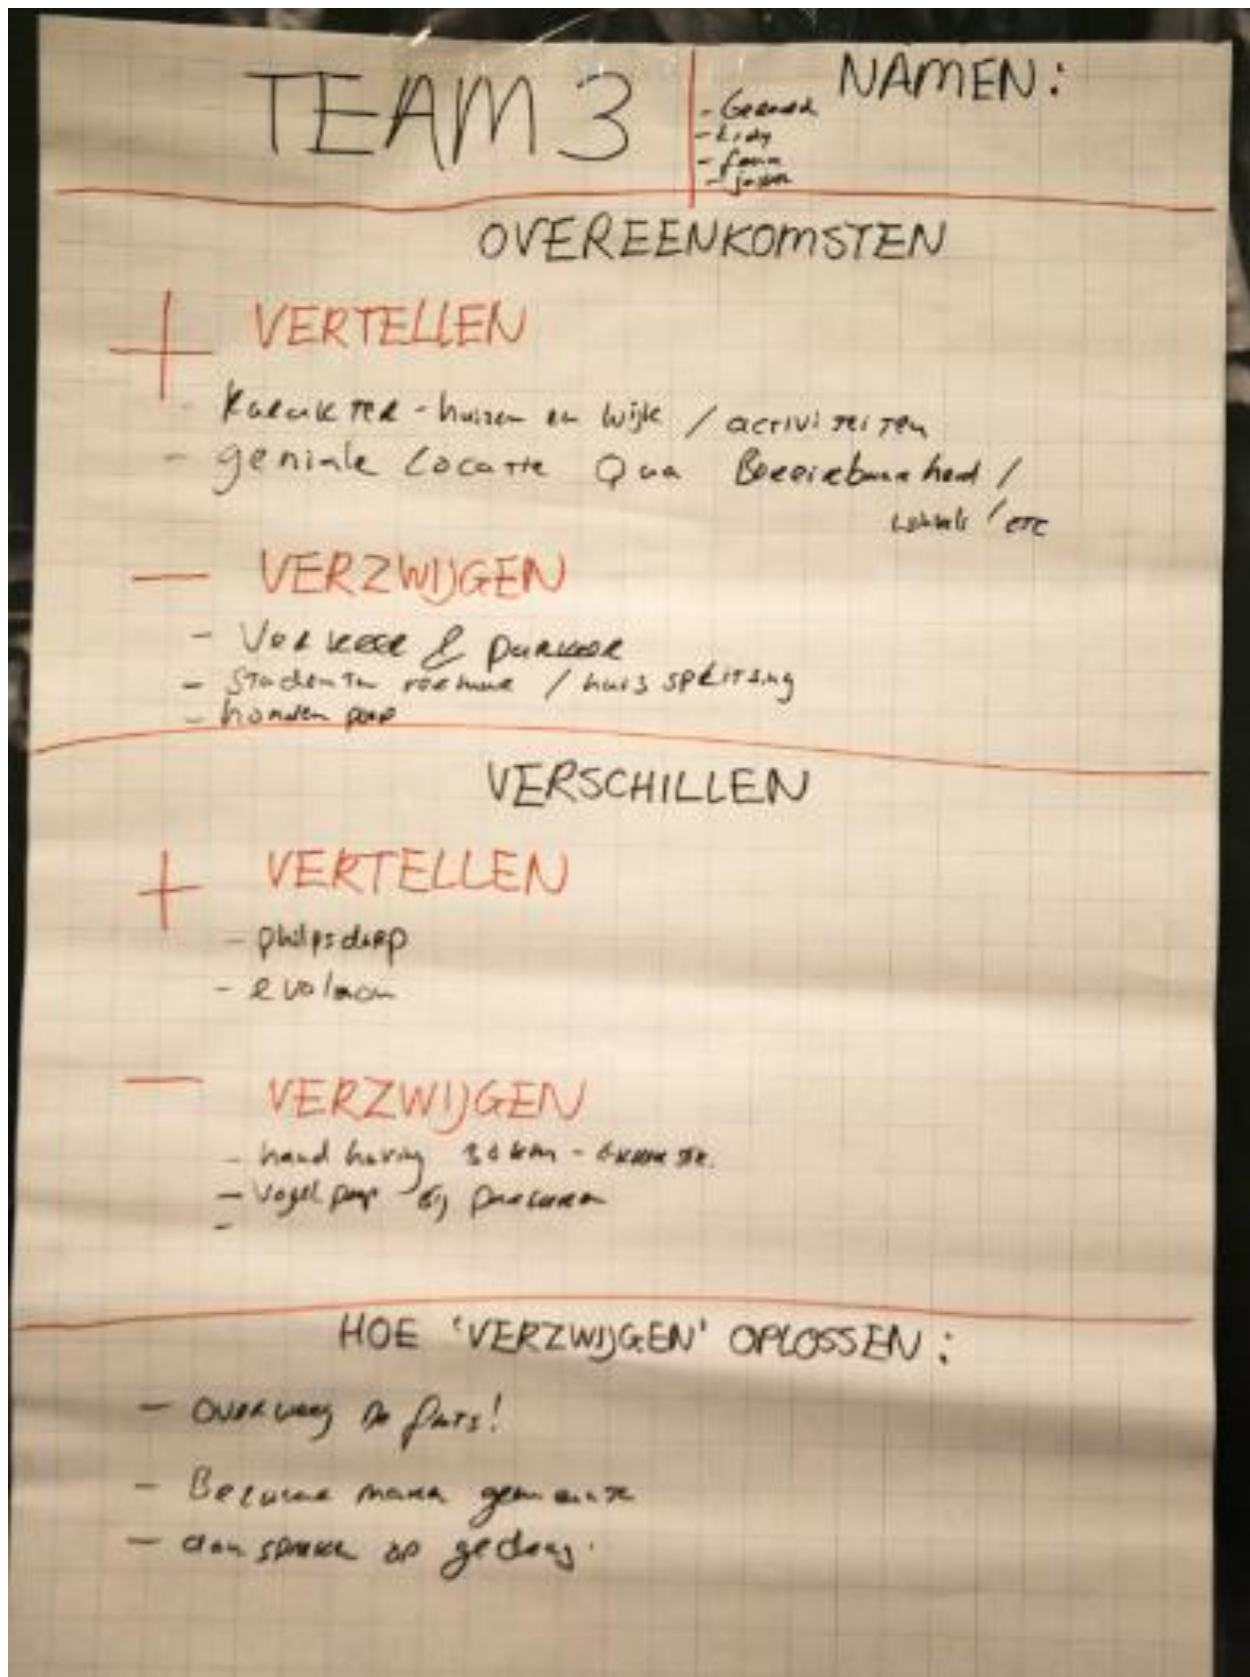 TEAM 3
NAMEN:
- Gerard
OVEREENKOMSTEN
+ VERTELLEN
- karakter - huizen en wijk / activiteiten
- geniale Locatie Qua Bereikbaarheid /
winkels / etc
- VERZWIJGEN
- Verkeer & parkeer
- Studenten verhuur / huis splitsing
- honden poep
VERSCHILLEN
+ VERTELLEN
- philipsdorp
- evoluon
- VERZWIJGEN
- handhaving 30 km -
- Vogel poep bij parkeren
-
HOE 'VERZWIJGEN' OPLOSSEN:
- Overweeg de fiets!
- gemeente
- aanspreken op gedrag.